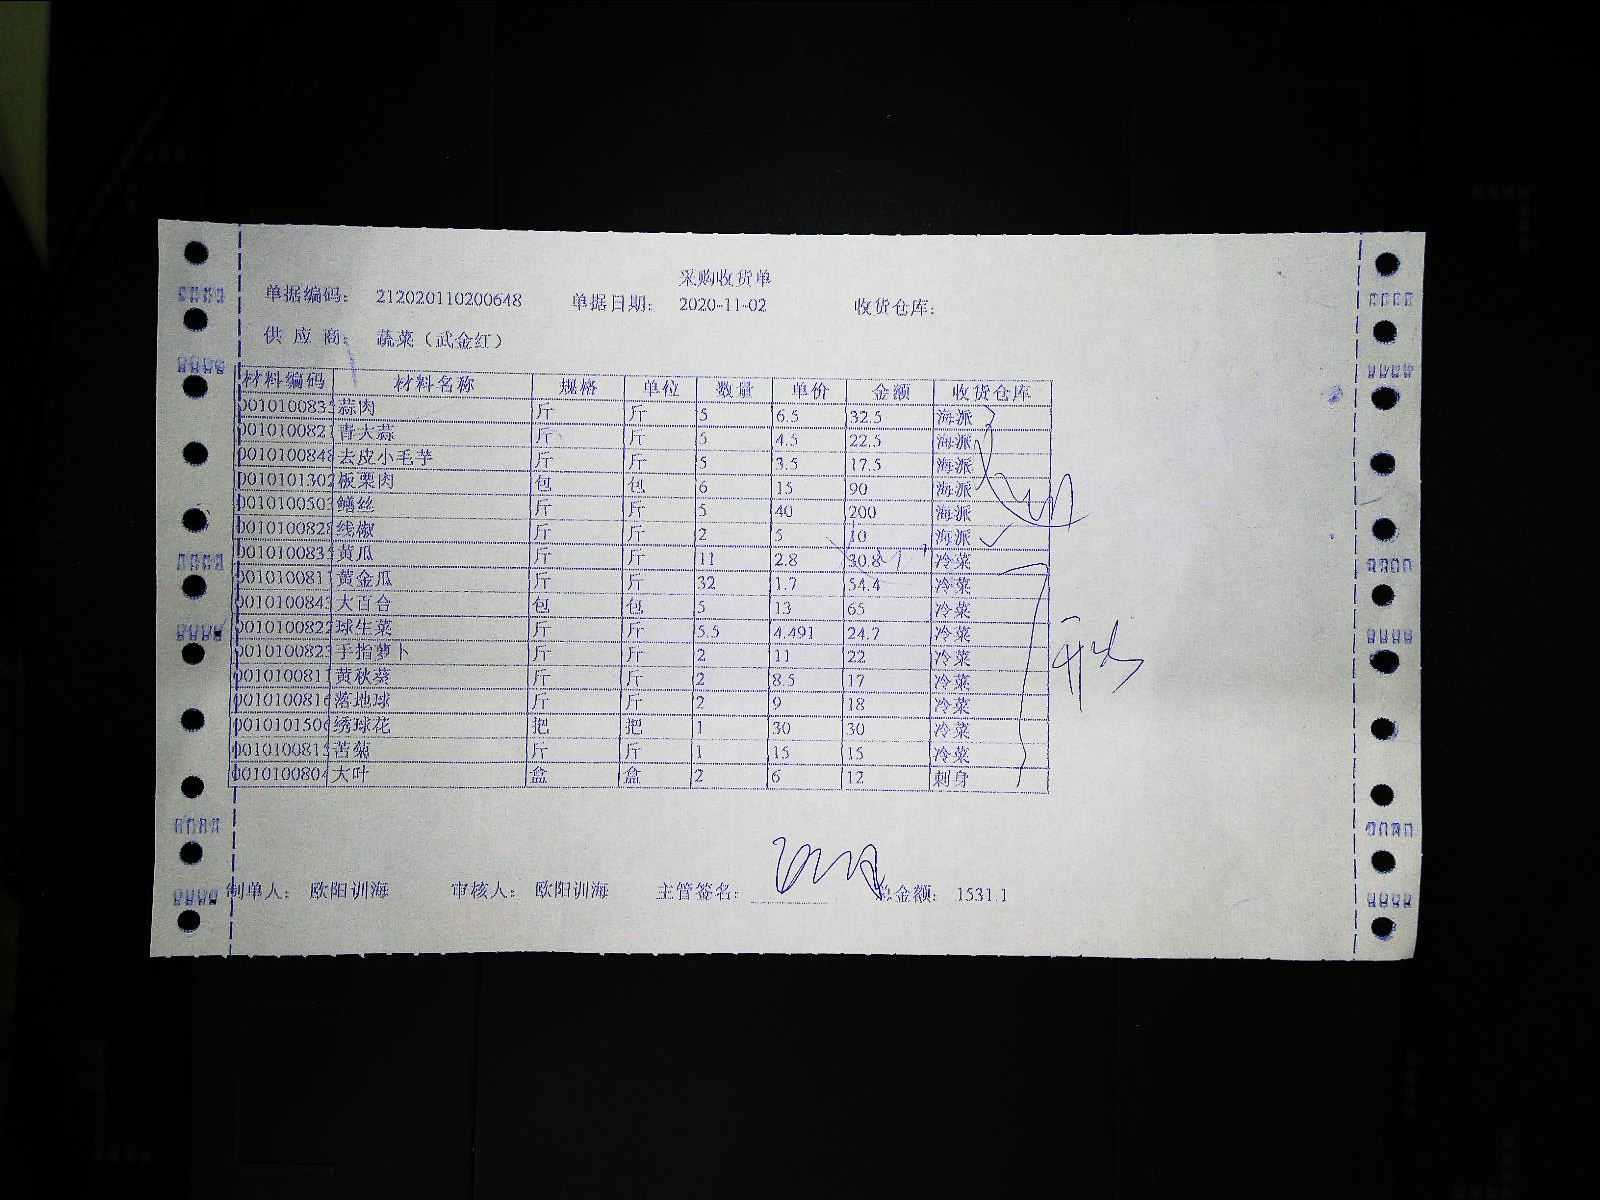 采购收货单
单据编码： 212020110200648 单据日期： 2020-11-02 收货仓库：
供 应 商： 蔬菜（武金红）
材料编码 材料名称 规格 单位 数量 单价 金额 收货仓库
0010100835 蒜肉 斤 斤 5 6.5 32.5 海派
0010100821 青大蒜 斤 斤 5 4.5 22.5 海派
0010100848 去皮小毛芋 斤 斤 5 3.5 17.5 海派
0010101302 板栗肉 包 包 6 15 90 海派
0010100503 鳝丝 斤 斤 5 40 200 海派
0010100828 线椒 斤 斤 2 5 10 海派
0010100835 黄瓜 斤 斤 11 2.8 30.8 冷菜
0010100811 黄金瓜 斤 斤 32 1.7 54.4 冷菜
0010100843 大百合 包 包 5 13 65 冷菜
0010100822 球生菜 斤 斤 5.5 4.491 24.7 冷菜
0010100823 手指萝卜 斤 斤 2 11 22 冷菜
0010100811 黄秋葵 斤 斤 2 8.5 17 冷菜
0010100816 落地球 斤 斤 2 9 18 冷菜
0010101506 绣球花 把 把 1 30 30 冷菜
0010100813 苦菊 斤 斤 1 15 15 冷菜
0010100804 大叶 盒 盒 2 6 12 刺身
制单人： 欧阳训海 审核人： 欧阳训海 主管签名： 总金额： 1531.1